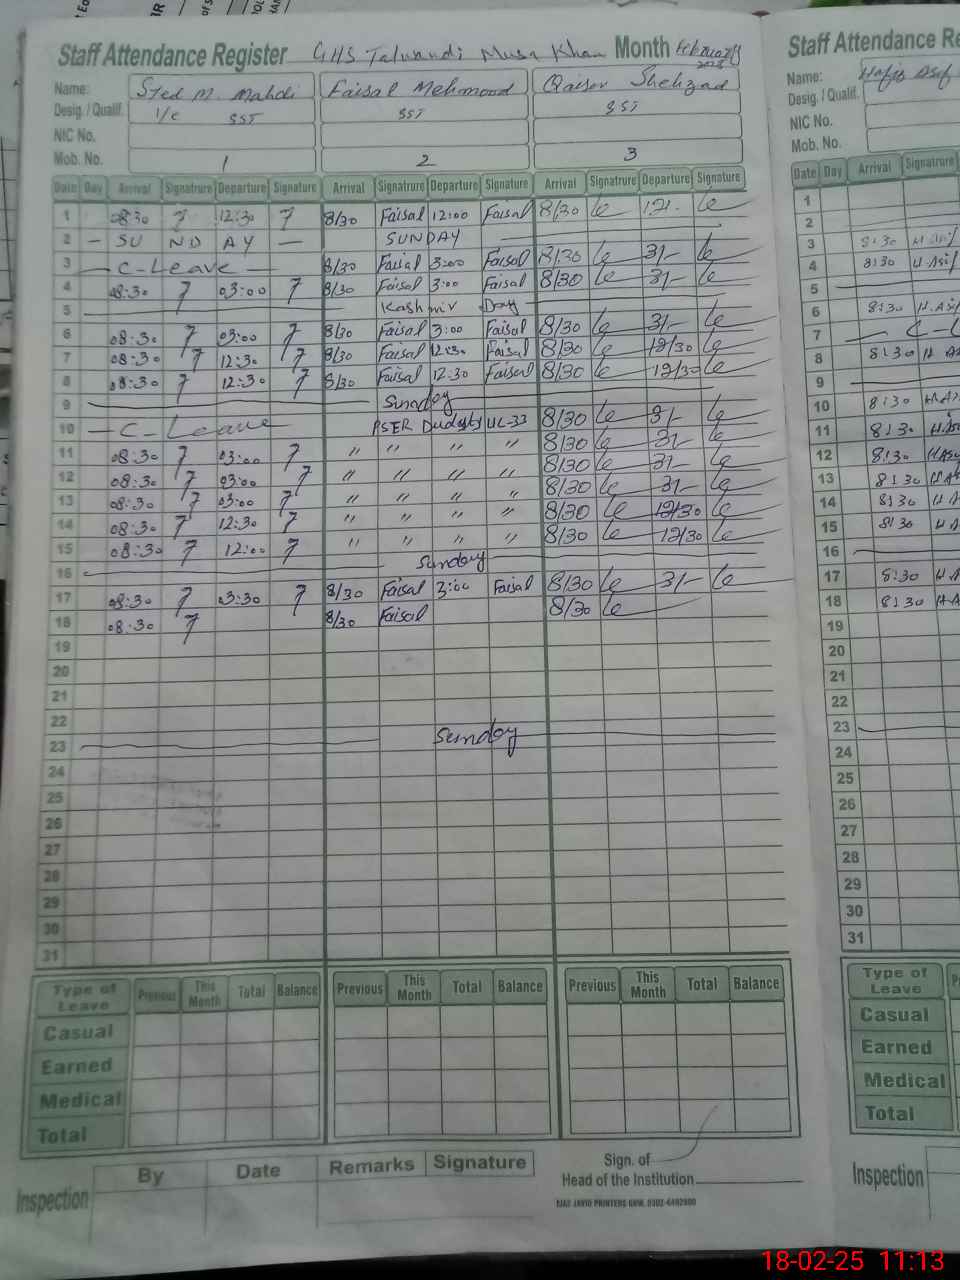 Staff Attendance Register GHS Talwandi Musa Khan Month February
Name: Syed M. Mahdi Faisal Mehmood Qaiser Shehzad
Desig. / Qualif. I/c SST SST SST
NIC No.
Mob. No. 1 2 3
Date Day Arrival Signatrure Departure Signature Arrival Signatrure Departure Signature Arrival Signatrure Departure Signature
1 08:30 12:30 8/30 Faisal 12:00 Faisal 8/30 12/-
2 — SUNDAY — SUNDAY
3 — C-Leave — 8/30 Faisal 3:00 Faisal 8/30 3/-
4 08:30 03:00 8/30 Faisal 3:00 Faisal 8/30 3/-
5 Kashmir Day
6 08:30 03:00 8/30 Faisal 3:00 Faisal 8/30 3/-
7 08:30 12:30 8/30 Faisal 12:30 Faisal 8/30 12/30
8 08:30 12:30 8/30 Faisal 12:30 Faisal 8/30 12/30
9 Sunday
10 — C-Leave PSER UC-33 8/30 3/-
11 08:30 03:00 " " " " 8/30 3/-
12 08:30 03:00 " " " " 8/30 3/-
13 08:30 03:00 " " " " 8/30 3/-
14 08:30 12:30 " " " " 8/30 12/30
15 08:30 12:00 " " " " 8/30 12/30
16 Sunday
17 08:30 03:30 8/30 Faisal 3:00 Faisal 8/30 3/-
18 08:30 8/30 Faisal 8/30
19
20
21
22
23 Sunday
24
25
26
27
28
29
30
31
Type of Leave Previous This Month Total Balance Previous This Month Total Balance Previous This Month Total Balance
Casual
Earned
Medical
Total
Inspection By Date Remarks Signature
Sign. of
Head of the Institution
EJAZ JAVID PRINTERS GRW. 0302-6492800
Staff Attendance Re
Name: Hafiz Asif
Desig. / Qualif.
NIC No.
Mob. No.
Date Day Arrival Signatrure
1
2
3 8:30 H.Asif
4 8:30 H.Asif
5
6 8:30 H.Asif
7 — C-L
8 8:30 H.As
9
10 8:30 H.As
11 8:30 H.As
12 8:30 H.As
13 8:30 H.As
14 8:30 H.A
15 8:30 H.A
16
17 8:30 H.A
18 8:30 H.A
19
20
21
22
23
24
25
26
27
28
29
30
31
Type of Leave
Casual
Earned
Medical
Total
Inspection
18-02-25 11:13